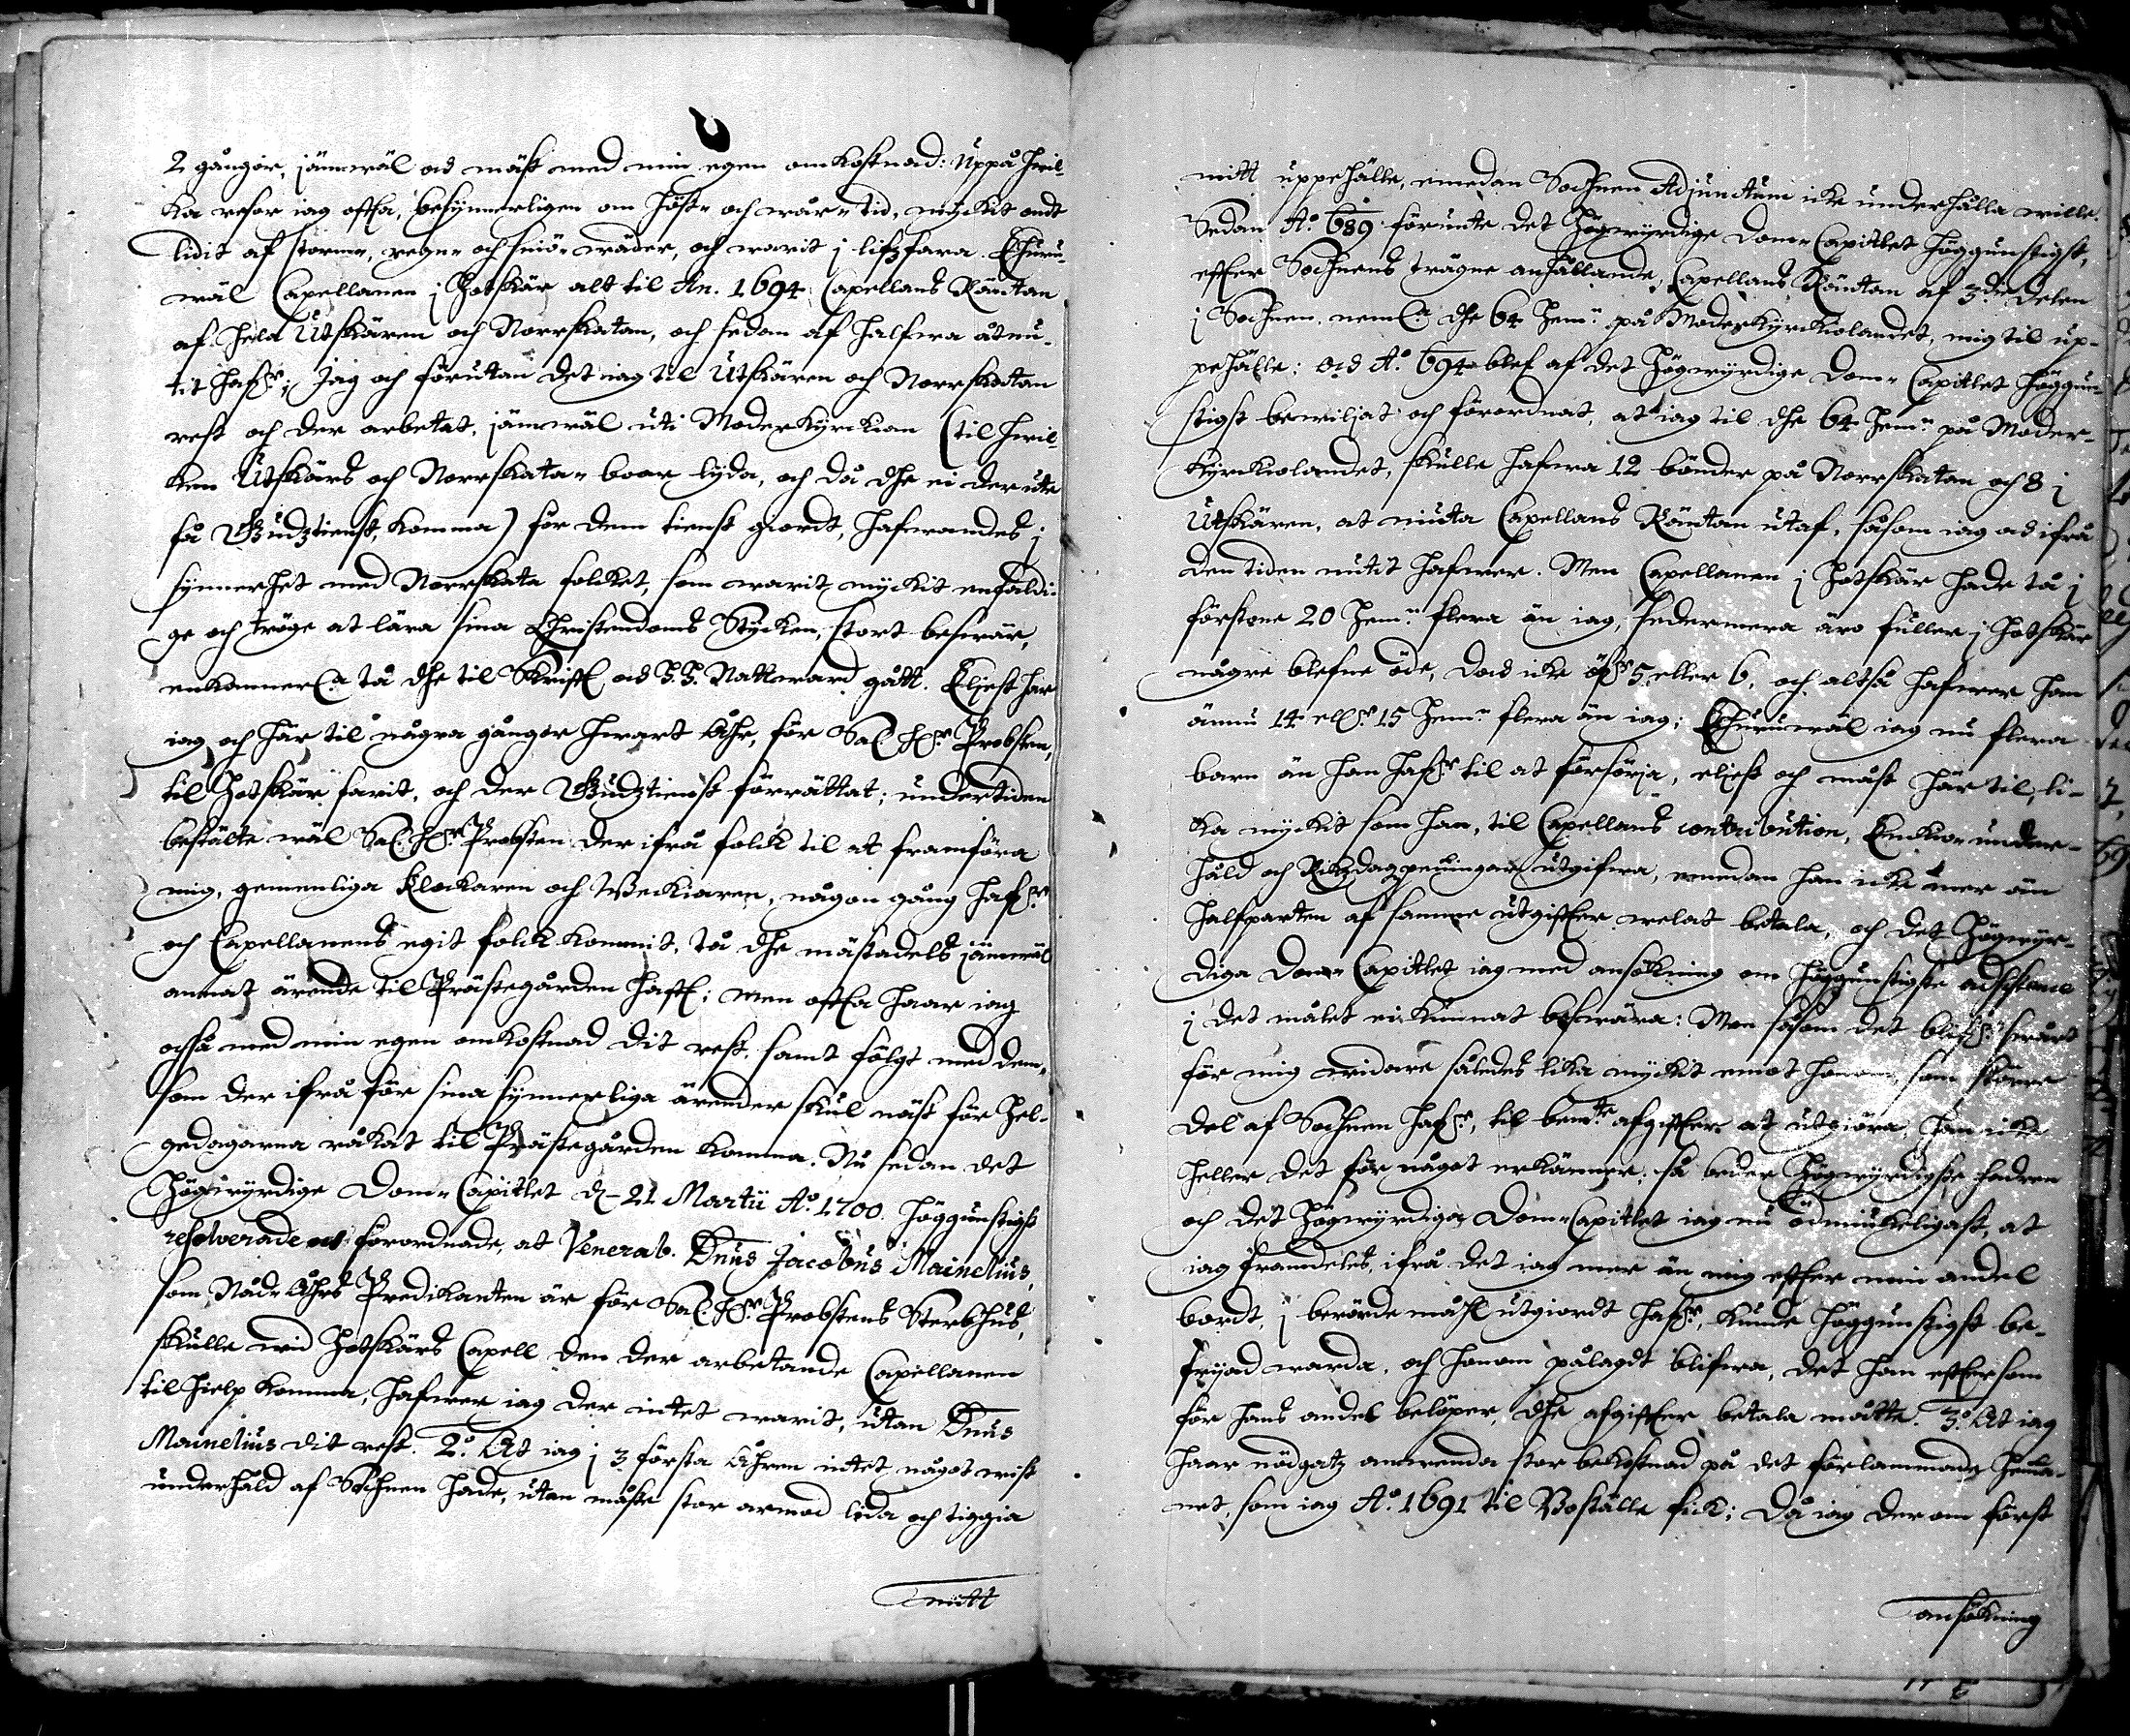 2 gångor, jämwäl ad mäst med min egen omkostnad: Uppå hwil-
ka resor iag offta, besynnerligen om höst- och wår-tid, myckit ondt
lidit af storm-, regn- och sniö-wäder, och warit j lifzfara. Ehuru-
wäl Capellanen j Hotskär alt til An. 1694 Capellans Räntan
af hela Utskären och Norrskatan, och sedan af halfwa åtnu-
tit hafr; Jag och förutan det iag til Utskären och Norrskatan
rest och der arbetat, jämwäl uti Moderkyrckian (til hwil-
ken Utskärs och Norrskata-boar lyda, och då dhe ei der ute
få Gudztienst, komma) för dem tienst giordt, hafwandes j
synnerhet med Norrskata folcket, som warit myckit enfaldi-
ge och tröge at lära sina Christendoms Stycken, stort beswär,
enkannerl. tå dhe til Skrifft ad H.H. Nattward gått. Eljest har
iag och här til några gångor hwart åhr, för Sal. Hr Probsten,
til Hotskär farit, och der Gudztienst förrättat; undertiden
bestälte wäl Sal. Hr Probsten der ifrå folck til at framföra
mig, gemenliga Klockaren och Weckiaren, någon gång hafr
och Capellanens egit folck kommit, tå dhe mästadels jämwäl
annat ärende til Prästegården hafft; men offta haar iag
ochså med min egen omkostnad dit rest, samt fölgt med dem,
som der ifrå för sina synnerliga ärender skul näst för Hel-
gedagarna råkat til Prästegården komma. Nu sedan det
Högwyrdige Dom-Capitlet d. 21 Martii A:o 1700 höggunstigst
resolverade förordnade, at Venerab. Dnus Jacobus Mainelius,
som Nåd-åhrs Predikanten är för Sal. Hr Probstens Sterbhus,
skulle wid Hotskärs Capell den der arbetande Capellanen
til hielp komma, hafwer iag der intet warit, utan Dnus
Mainelius dit rest. 2:o At iag j 3 första åhren intet något wist
underhåld af Sochnen hade, utan måste stor armod lida och tiggia
mitt
mitt uppehälle, emedan Sochnen Adjunctum icke underhålla wille.
Sedan A:o 689 förunte det Högwyrdige Dom-Capitlet höggunstigst,
effter Sochnens trägne anhållande, Capellans Räntan af 3:die delen
j Sochnen, neml. dhe 64 Hem:n på Moderkyrckiolandet, mig til up-
pehälle: ad A:o 694 blef af det Högwyrdige Dom-Capitlet höggun-
stigst bewiljat och förordnat, at iag til dhe 64 Hem:n på Moder-
kyrckiolandet, skulle hafwa 12 bönder på Norrskatan och 8 j
Utskären, at niuta Capellans Räntan utaf, såsom iag ad ifrå
den tiden nutit hafwer. Men Capellanen j Hotskär hade tå j
förstone 20 Hem:n flera än iag, sedermera äro fuller j Hotskär
någre blefne öde, dock icke öfr 5 eller 6, och altså hafwer han
ännu 14 ellr 15 Hem:n flera än iag; Ehuruwäl iag nu flera
barn än han hafr til at försörja, eljest och måst här til, li-
ka myckit som han, til Capellans contribution, Enckio-under-
håld och Rikzdagzpenningar utgifwa, emedan han icke mer än
halfparten af samme utgiffter welat betala, och det Högwyr-
diga Dom-Capitlet iag med ansökning om höggunstigste adsistence
j det målet ei kunnat beswära: Men såsom det blifr swårt
för mig widare således lika myckit emot honom, som större
del af Sochnen hafr, til bem:te afgiffter at utgiöra, han icke
heller det för något erkänner; så beder Högwyrdigste Fadren
och det Högwyrdiga Dom-Capitlet iag nu ödmiukeligast, at
iag framdeles, ifrå det iag mer än mig effter min andel
bordt, j berörde måhl utgiordt hafr, kunde höggunstigst be-
fryad warda, och honom pålagdt blifwa, det han effter som
för hans andel belöper, dhe afgiffter betala måtte. 3:o At iag
haar nödgatz anwenda stor bekostnad på det förlammade Hema-
net, som iag A:o 1691 til Boställe fick; Då iag der om först
ansökning